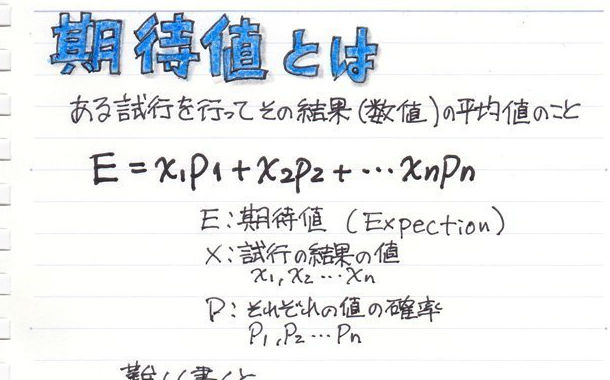 期待値とは
ある試行を行ってその結果(数値)の平均値のこと
E = x₁p₁ + x₂p₂ + … xnpn
E:期待値 (Expection)
X:試行の結果の値
x₁, x₂ … xn
P:それぞれの値の確率
p₁, p₂ … pn
難しく書くと